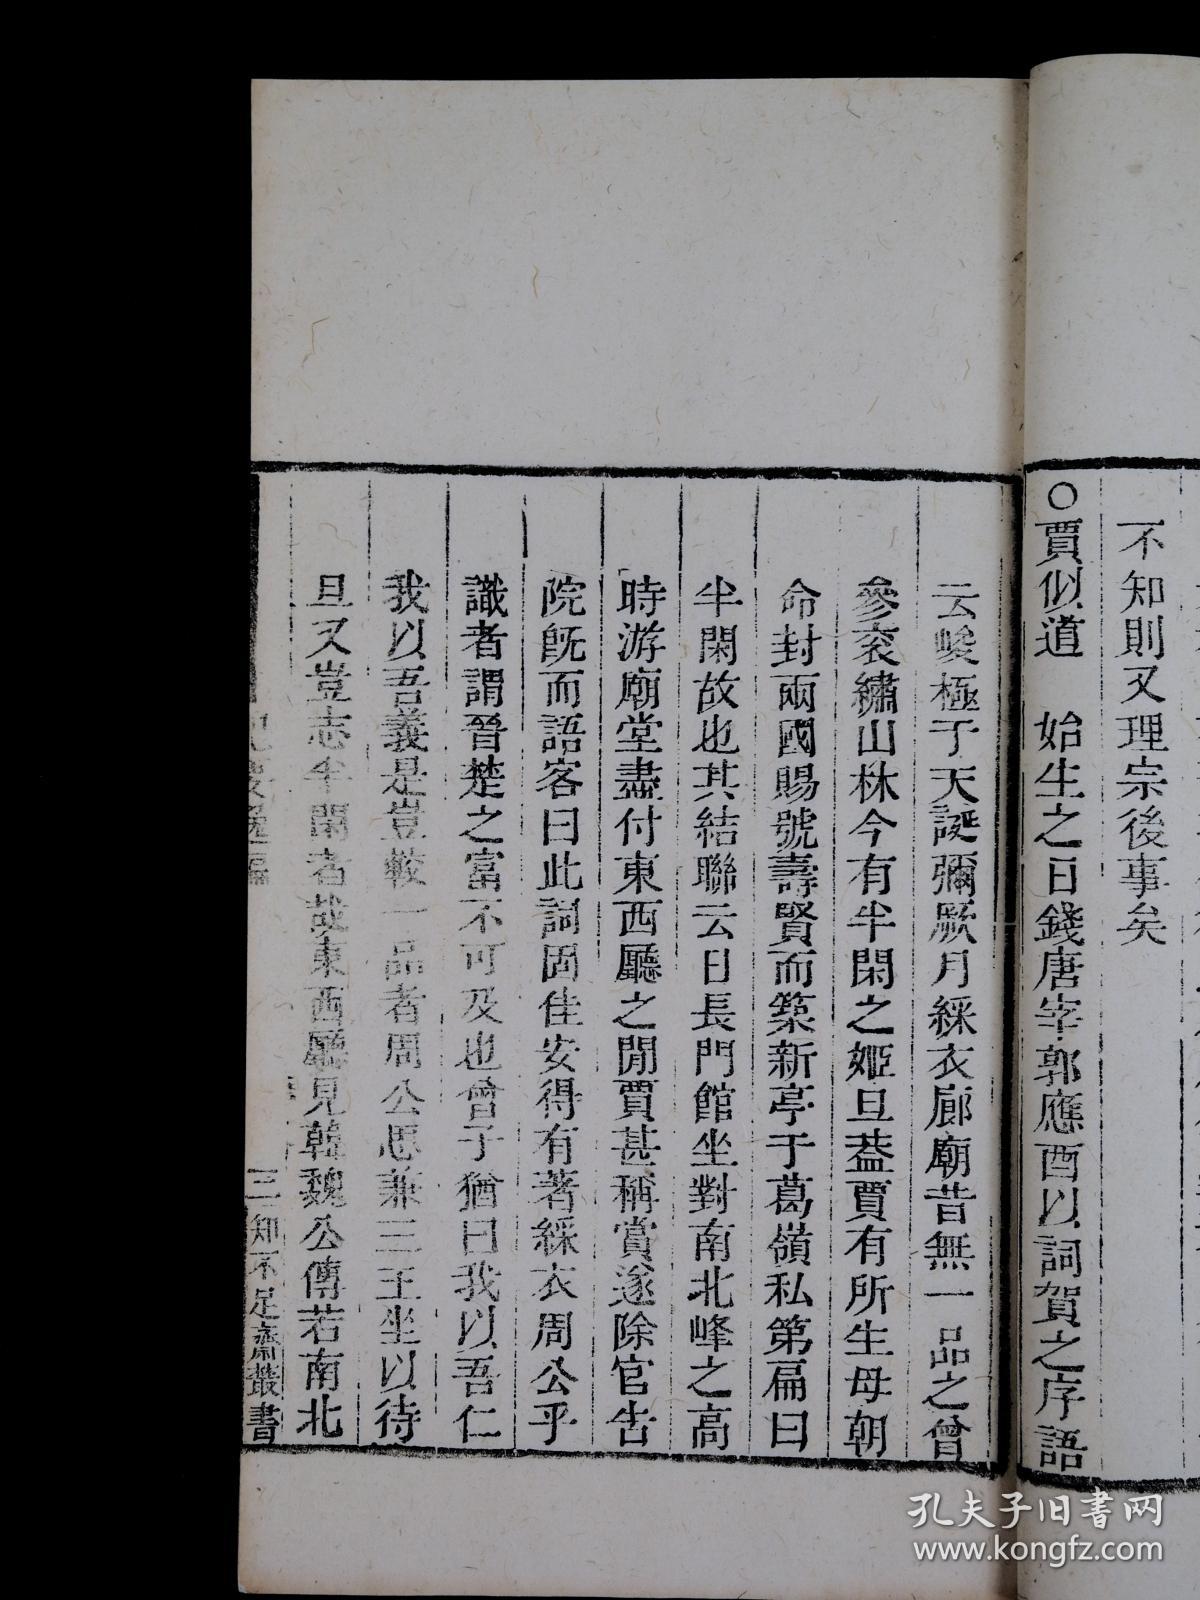 不知則又理宗後事矣
○賈似道 始生之日錢唐宰郭應酉以詞賀之序語
云峻極于天誕彌厥月綵衣廊廟昔無一品之曾
參衮繡山林今有半閑之姬旦葢賈有所生母朝
命封兩國賜號壽賢而築新亭于葛嶺私第扁曰
半閑故也其結聯云日長門館坐對南北峰之高
時游廟堂盡付東西廳之閒賈甚稱賞遂除官告
院旣而語客曰此詞固佳安得有著綵衣周公乎
識者謂晉楚之富不可及也曾子猶曰我以吾仁
我以吾義是豈較一品者周公思兼三王坐以待
旦又豈志半閑者哉東西廳見韓魏公傳若南北
三 知不足齋叢書
孔夫子旧书网
www.kongfz.com